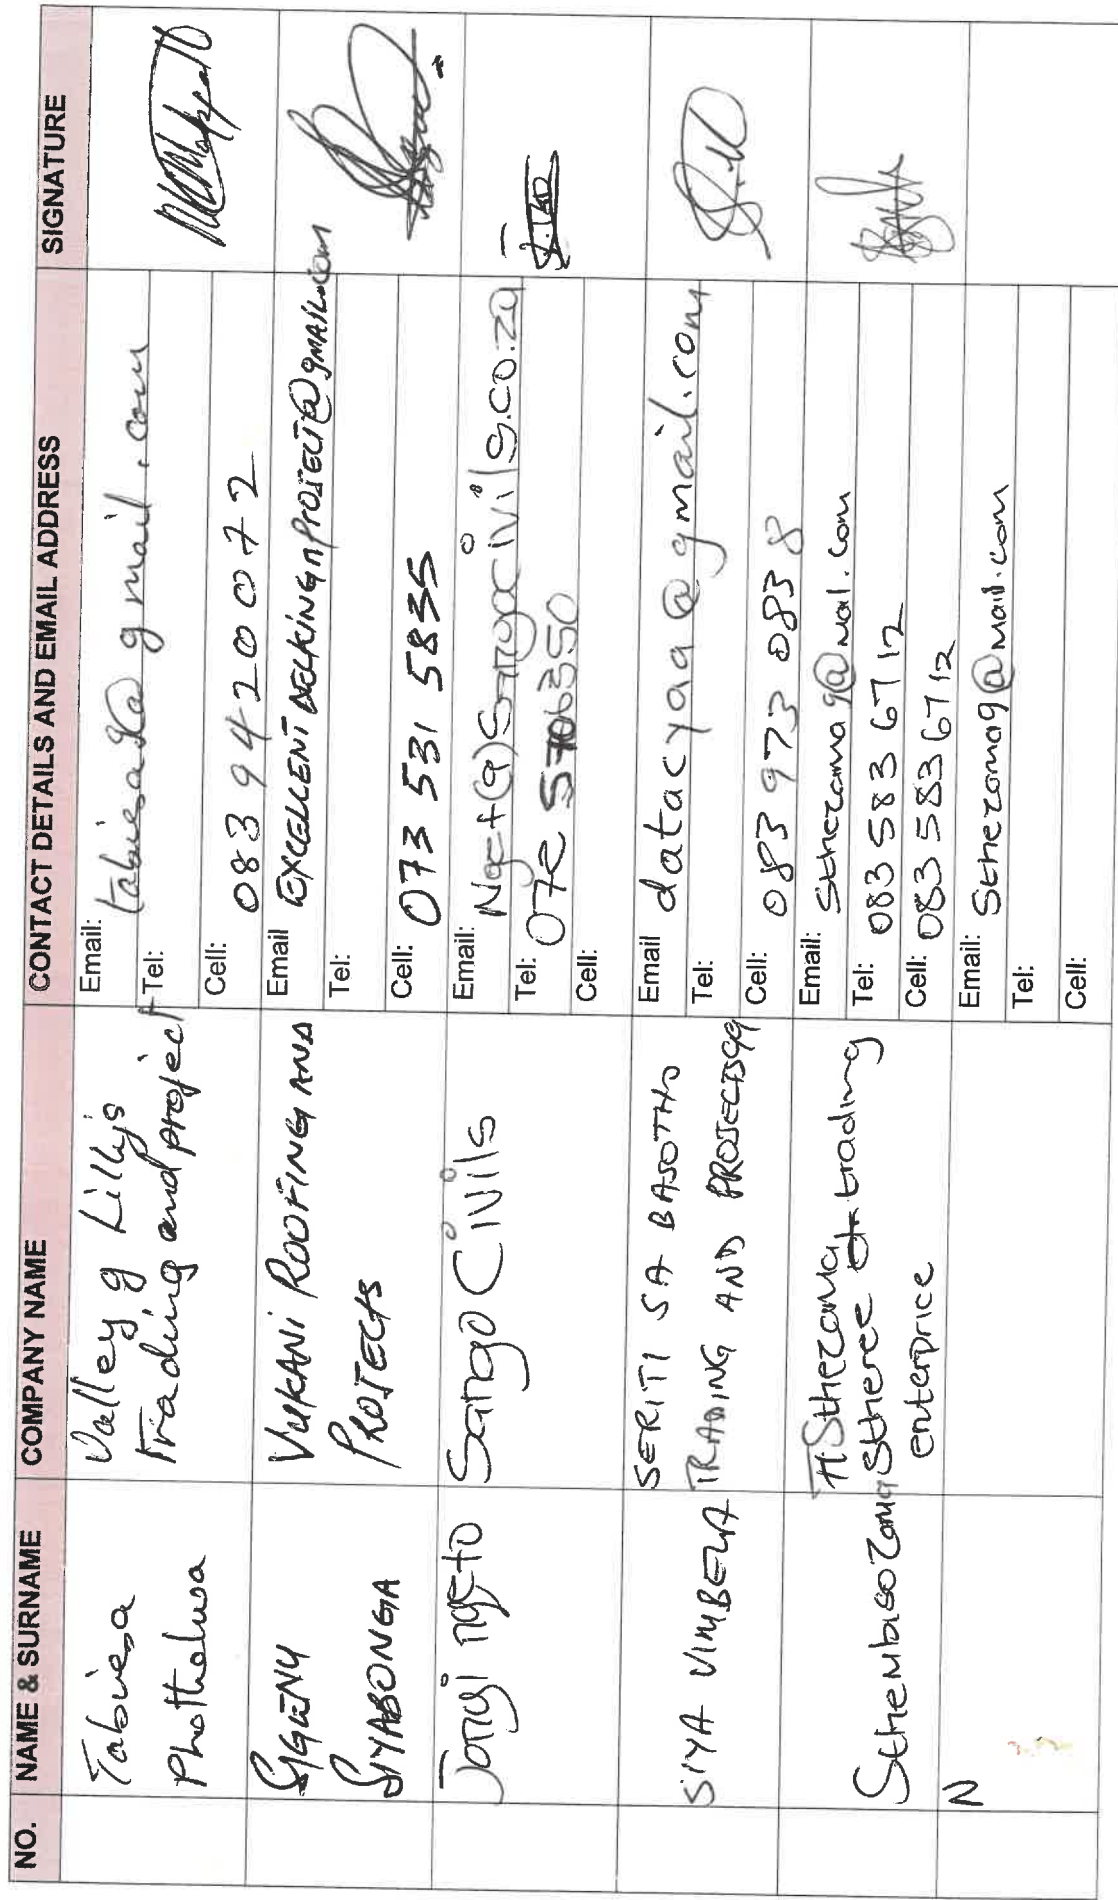 NO. NAME & SURNAME COMPANY NAME CONTACT DETAILS AND EMAIL ADDRESS SIGNATURE
Tabiesa
Phatthelusa
Valley g Lilly's
Trading and project
Email: tabiesa
gmail.com
Tel:
Cell: 083 942 0072
SIYABONGA
VUKANI ROOFING AND
PROJECTS
Email EXCELLENT
PROJECT@gmail.com
Tel:
Cell: 073 531 5835
Jongi ngeto
Sango Civils
Email:
civils.co.za
Tel: 072
6350
Cell:
SIYA VIMBELA
SERITI SA BASOTHO
TRADING AND PROJECTS99
Email datacyaa@gmail.com
Tel:
Cell: 083 973 0838
Sthembiso Zama
Sthezama
Stheree trading
enterprice
Email: Sthezama9@
.com
Tel: 083 583 6712
Cell: 083 583 6712
N
Email: Sthezama9@mail.com
Tel:
Cell: